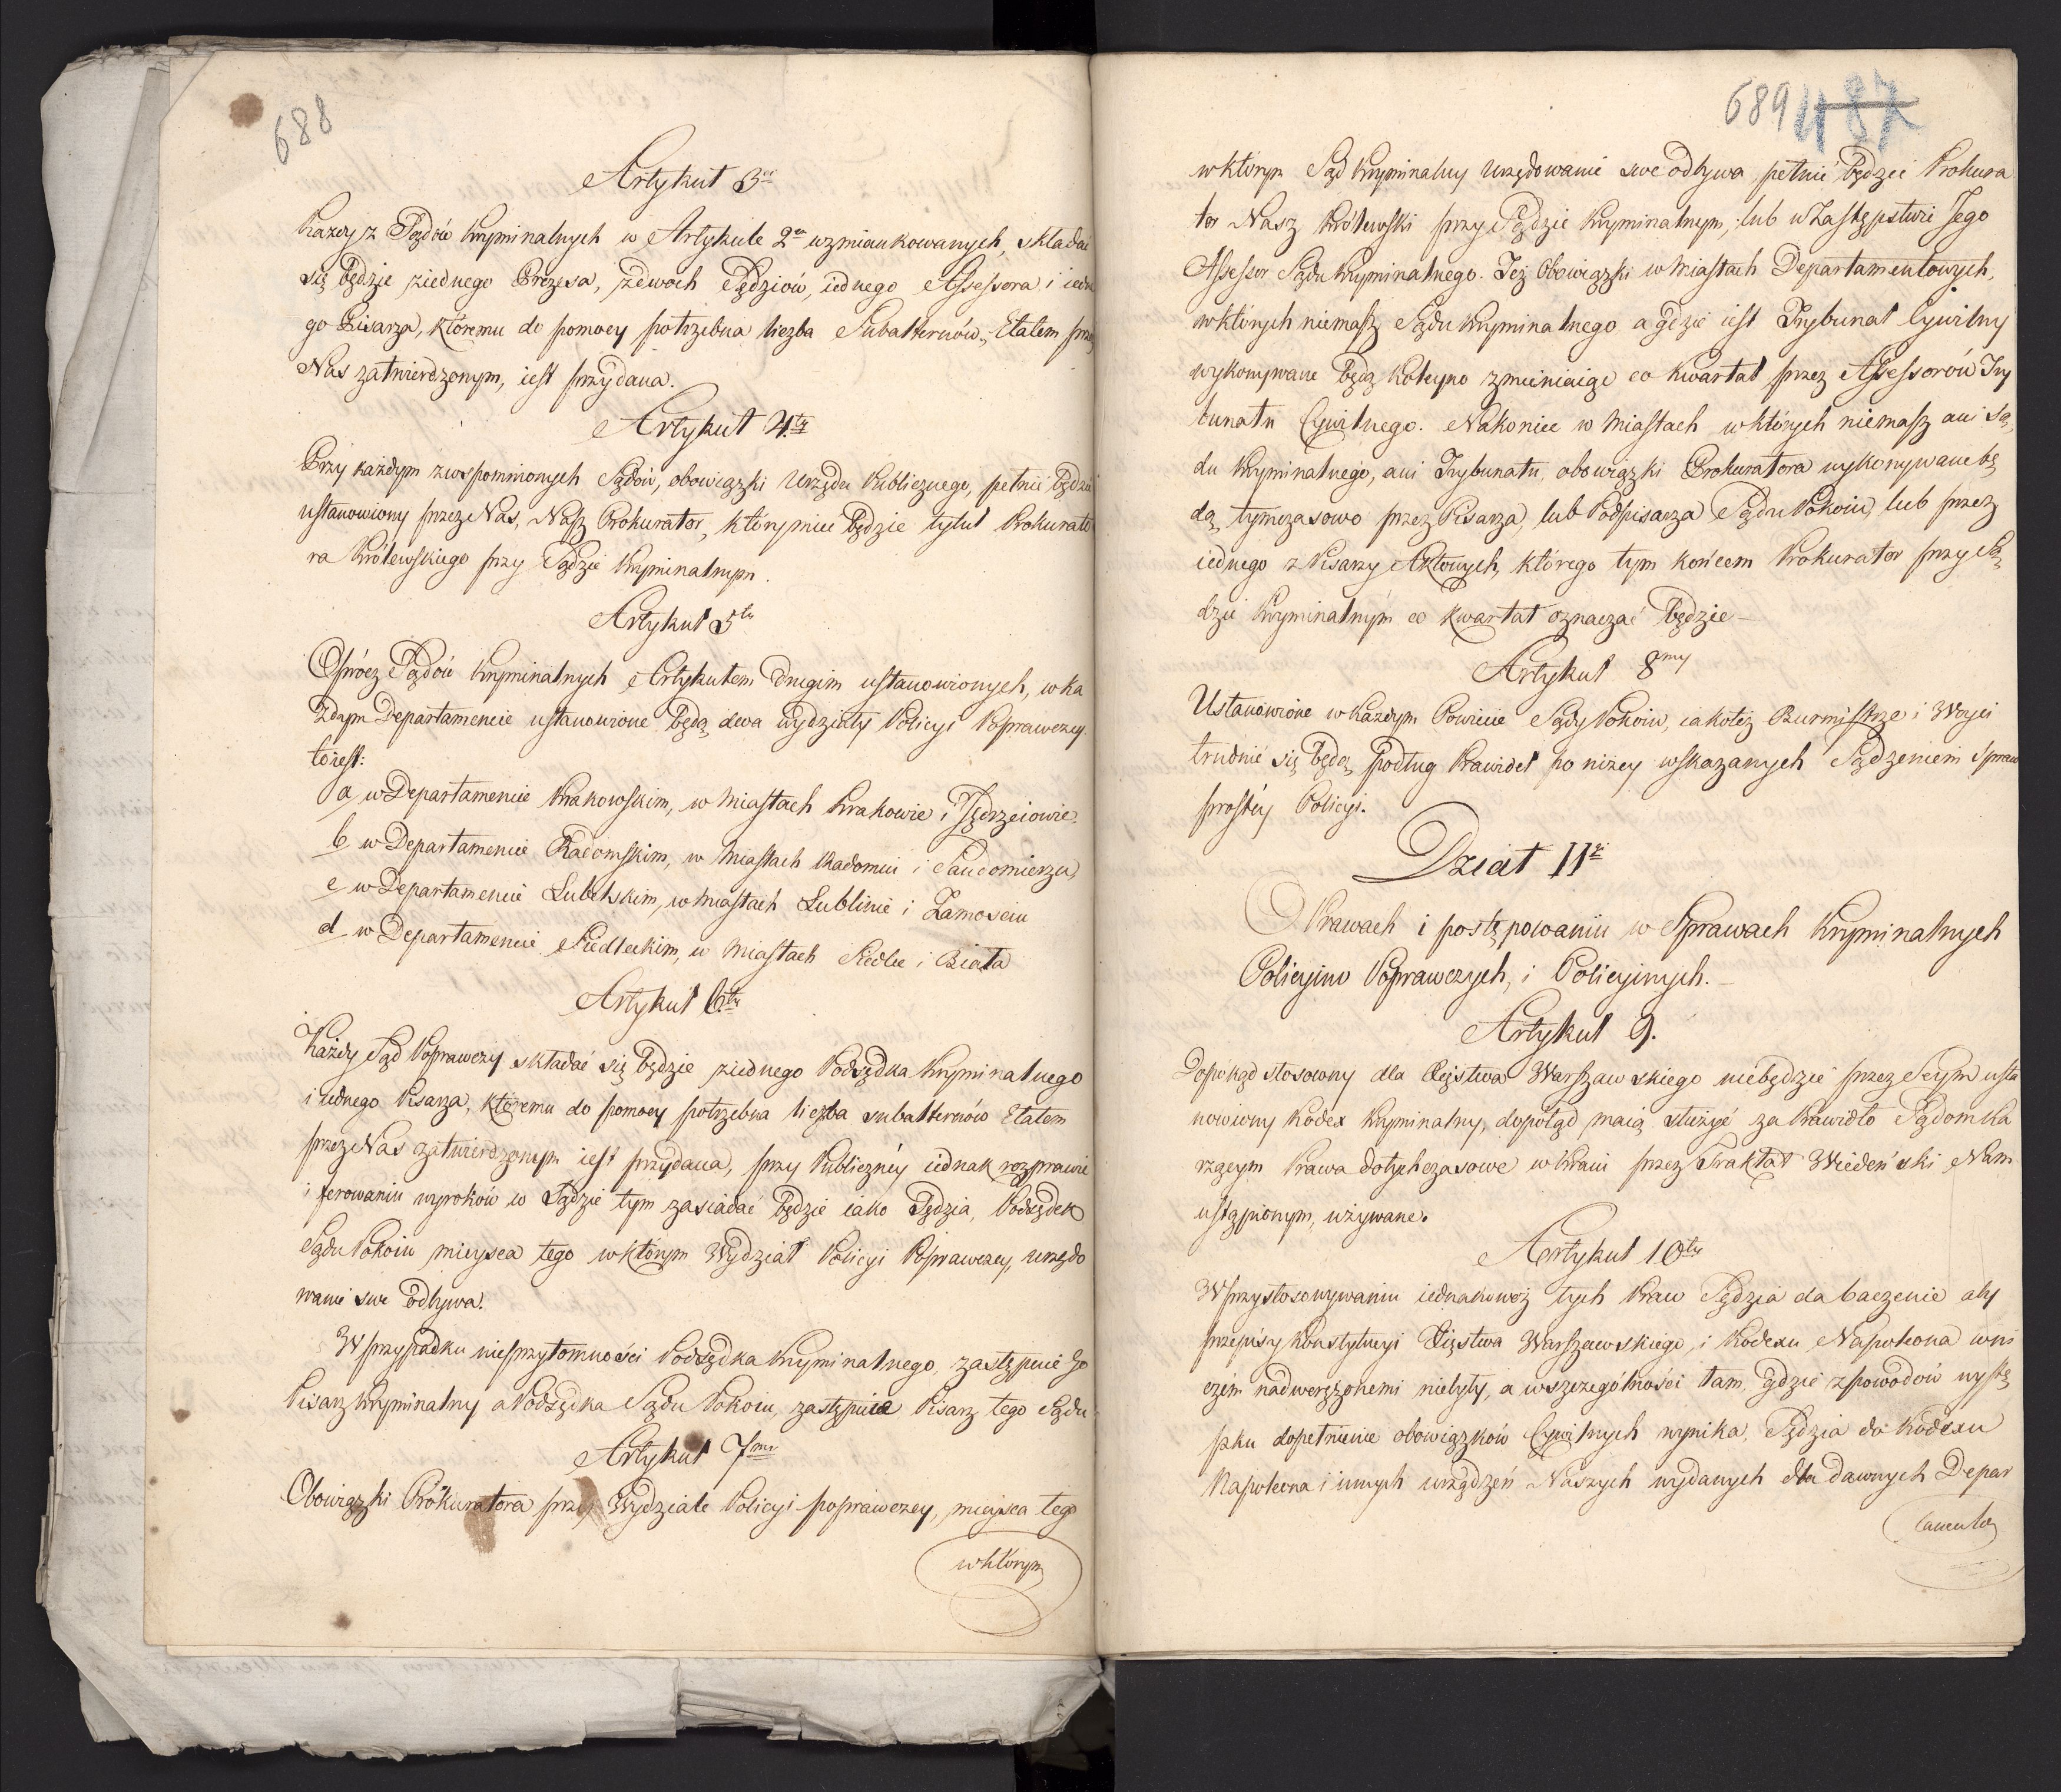 688
Artykuł 3ci
Każdy z Sądów Kryminalnych w Artykule 2m wzmiankowanych, składać
się będzie z iednego Prezesa, z dwoch Sędziów, iednego Assessora i iedne
go Pisarza, któremu do pomocy potrzebna liczba Subalternów, Etatem przez
Nas zatwierdzonym, iest przydana.
Artykuł 4ty
Przy każdym z wspomnionych Sądów, obowiązki Urzędu Publicznego, pełnić będzie
ustanowiony przez Nas, Nasz Prokurator, który mieć będzie tytuł Prokurato
ra Królewskiego przy Sądzie Kryminalnym.
Artykuł 5ty
Oprócz Sądów Kryminalnych Artykułem Drugim ustanowionych, w ka
żdym Departamencie ustanowione będą dwa wydziały Policyi Poprawczey.
to iest:
a w Departamencie Krakowskim, w Miastach Krakowie i Jędrzeiowie.
b w Departamencie Radomskim, w Miastach Radomiu i Sandomierzu,
c w Departamencie Lubelskim, w Miastach Lublinie i Zamosciu
d w Departamencie Siedleckim, w Miastach Siedlce i Biała
Artykuł 6ty
Każdy Sąd Poprawczy składać się będzie z iednego Podsędka Kryminalnego
i iednego Pisarza, któremu do pomocy potrzebna liczba subalternów Etatem
przez Nas zatwierdzonym iest przydana, przy Publiczney iednak rozprawie
i ferowaniu wyroków w Sądzie tym zasiadać będzie iako Sędzia, Podsędek
Sądu Pokoiu mieysca tego w którym Wydział Policyi Poprawczey, urzędo
wanie swe odbywa.
W przypadku nieprzytomności Podsędka Kryminalnego, zastępuie Go
Pisarz Kryminalny a Podsędka Sądu Pokoiu, zastępuie Pisarz tego Sądu.
Artykuł 7my
Obowiązki Prokuratora przy Wydziale Policyi poprawczey, mieysca tego
w którym
689 487
w którym Sąd Kryminalny urzędowanie swe odbywa pełnić będzie Prokura
tor Nasz Królewski przy Sądzie Kryminalnym, lub w Zastępstwie Jego
Assessor Sądu Kryminalnego. Też Obowiązki w Miastach Departamentowych,
w których niemasz Sądu Kryminalnego a gdzie iest Trybunał Cywilny
wykonywane będą koleyno zmieniaiąc co kwartał przez Assessorów Try
bunału Cywilnego. Nakoniec w Miastach w których niemasz ani Są
du Kryminalnego, ani Trybunału, obowiązki Prokuratora wykonywane bę
dą tymczasowo przez Pisarza, lub Podpisarza Sądu Pokoiu, lub przez
iednego z Pisarzy Aktowych, którego tym końcem Prokurator przy Są
dzie Kryminalnym co kwartał oznaczać będzie
Artykuł 8my
Ustanowione w każdym Powiecie Sądy Pokoiu, iakoteż Burmistrze i Woyci
trudnić się będą podług Prawideł poniżey wskazanych Sądzeniem Spraw
prostéy Policyi.
Dział IIgi
O Prawach i postępowaniu w Sprawach Kryminalnych
Policyino Poprawczych, i Policyinych.
Artykuł 9.
Dopókąd stosowny dla Xięstwa Warszawskiego niebędzie przez Seym usta
nowiony Kodex Kryminalny, dopótąd maią służyć za Prawidło Sądom Ka
rzącym Prawa dotychczasowe w Kraiu przez Traktat Wiedeński Nam
ustąpionym, używane.
Artykuł 10ty
W przystosowywaniu iednakowoż tych Praw Sędzia da baczenie aby
przepisy Konstytucyi Xięstwa Warszawskiego, i Kodexu Napoleona w ni
czém nadwerężonemi niebyły, a w szczególności tam, gdzie z powodów wystę
pku dopełnienie obowiązków Cywilnych wynika, Sędzia do Kodexu
Napoleona i innych urządzeń Naszych wydanych dla dawnych Depar